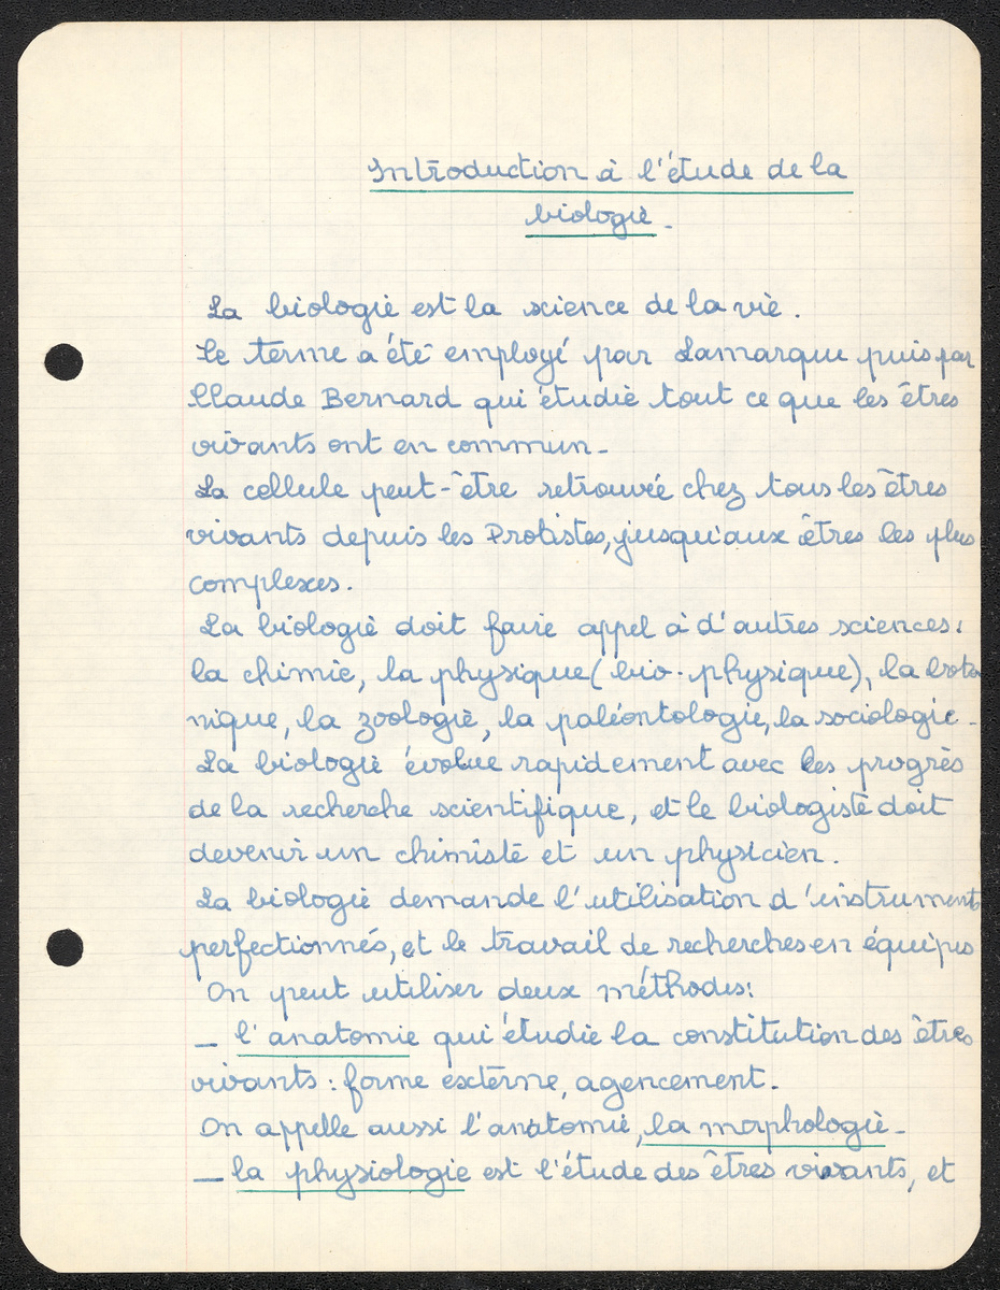 Introduction à l'étude de la
biologie.
La biologie est la science de la vie.
Le terme a été employé par Lamarque puis par
Claude Bernard qui étudie tout ce que les êtres
vivants ont en commun.
La cellule peut-être retrouvée chez tous les êtres
vivants depuis les Protistes, jusqu'aux êtres les plus
complexes.
La biologie doit faire appel à d'autres sciences:
la chimie, la physique (bio-physique), la bota
nique, la zoologie, la paléontologie, la sociologie.
La biologie évolue rapidement avec les progrès
de la recherche scientifique, et le biologiste doit
devenir un chimiste et un physicien.
La biologie demande l'utilisation d'instruments
perfectionnés, et le travail de recherches en équipes
On peut utiliser deux méthodes:
_ l'anatomie qui étudie la constitution des êtres
vivants : forme externe, agencement.
On appelle aussi l'anatomie, la morphologie.
_ la physiologie est l'étude des êtres vivants, et